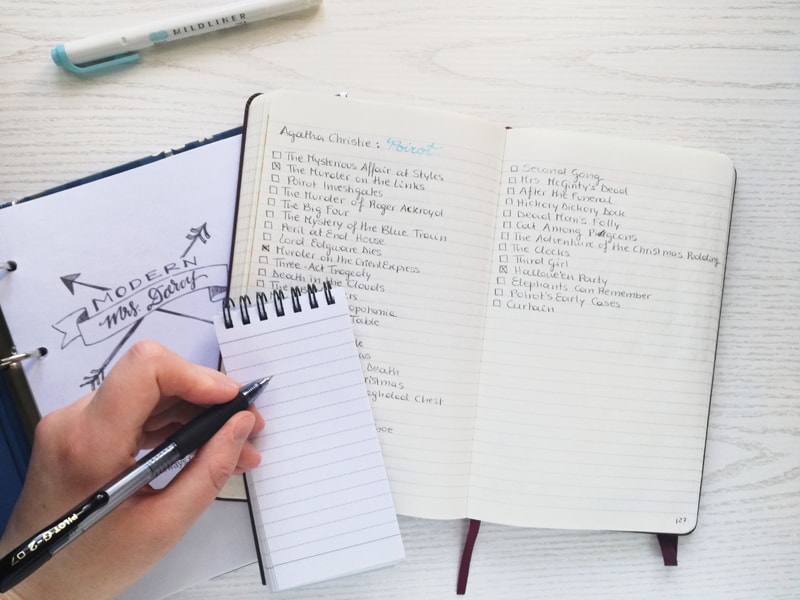 MILDLINER
Agatha Christie : Poirot
The Mysterious Affair at Styles
The Murder on the Links
Poirot Investigates
The Murder of Roger Ackroyd
The Big Four
The Mystery of the Blue Train
Peril at End House
Lord Edgware Dies
Murder on the Orient Express
Three-Act Tragedy
Death in the Clouds
The
Table
Death
Chest
Second Gong
Mrs McGinty's Dead
After the Funeral
Hickory Dickory Dock
Dead Man's Folly
Cat Among Pigeons
The Adventure of the Christmas Pudding
The Clocks
Third Girl
Hallowe'en Party
Elephants Can Remember
Poirot's Early Cases
Curtain
127
MODERN
Mrs. Darcy
PILOT G-2 07